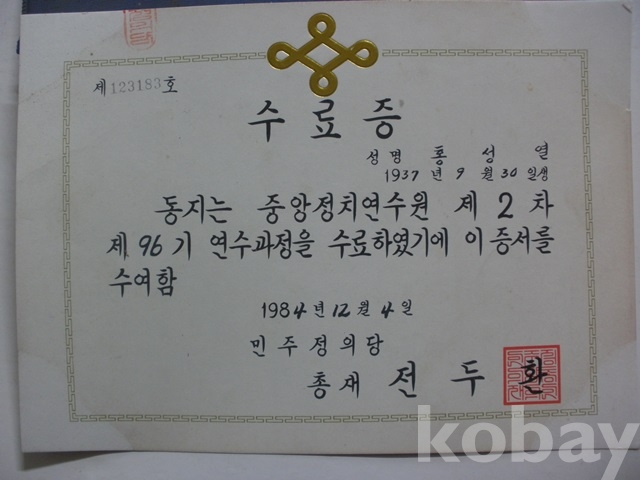 제123183호
수료증
성명 홍성열
1937년 9월 30일생
동지는 중앙정치연수원 제2차
제96기 연수과정을 수료하였기에 이 증서를
수여함
1984년 12월 4일
민주정의당
총재 전두환
kobay